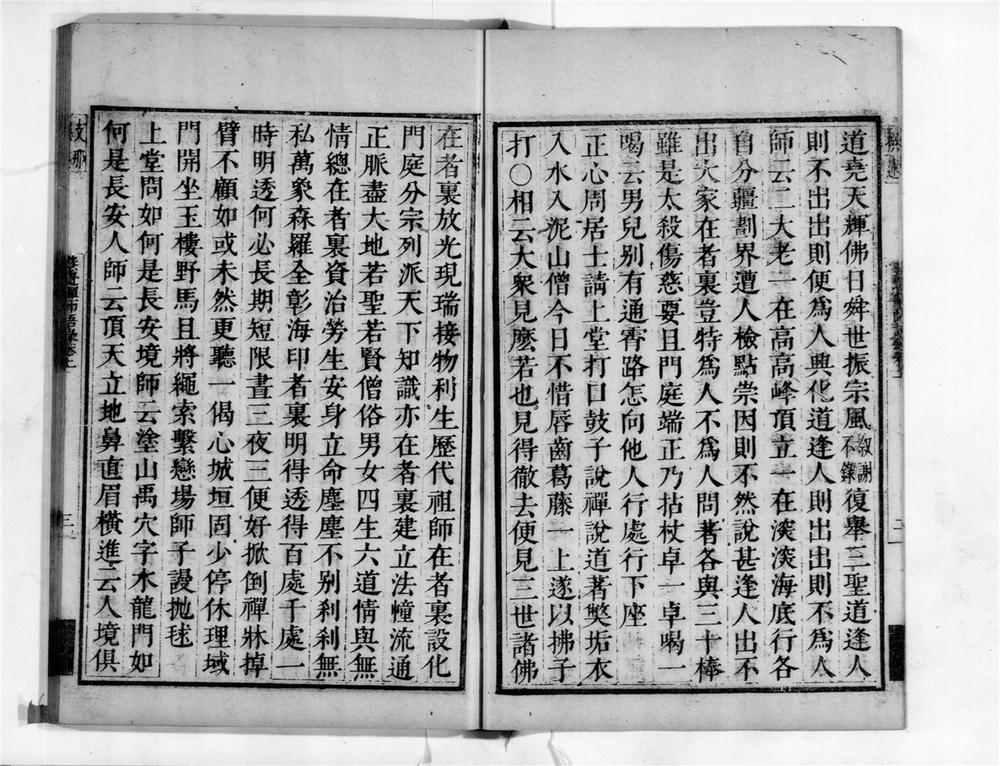 道堯天輝佛日舜世振宗風叙謝不錄復舉三聖道逢人
則不出出則便爲人興化道逢人則出出則不爲人
師云二大老一在高高峰頂立一在深深海底行各
自分疆劃界遭人檢點崇因則不然說甚逢人出不
出大家在者裏豈特爲人不爲人問著各與三十棒
雖是太殺傷慈要且門庭端正乃拈杖卓一卓喝一
喝云男兒別有通霄路怎向他人行處行下座
正心周居士請上堂打口鼓子說禪說道著獘垢衣
入水入泥山僧今日不惜唇齒葛藤一上遂以拂子
打〇相云大衆見麽若也見得徹去便見三世諸佛
在者裏放光現瑞接物利生歷代祖師在者裏設化
門庭分宗列派天下知識亦在者裏建立法幢流通
正脈盡大地若聖若賢僧俗男女四生六道情與無
情總在者裏資治勞生安身立命塵塵不別刹刹無
私萬象森羅全彰海印者裏明得透得百處千處一
時明透何必長期短限晝三夜三便好掀倒禪牀掉
臂不顧如或未然更聽一偈心城垣固少停休理域
門開坐玉樓野馬且將繩索繫戀場師子謾抛毬
上堂問如何是長安境師云塗山禹穴字水龍門如
何是長安人師云頂天立地鼻直眉橫進云人境俱